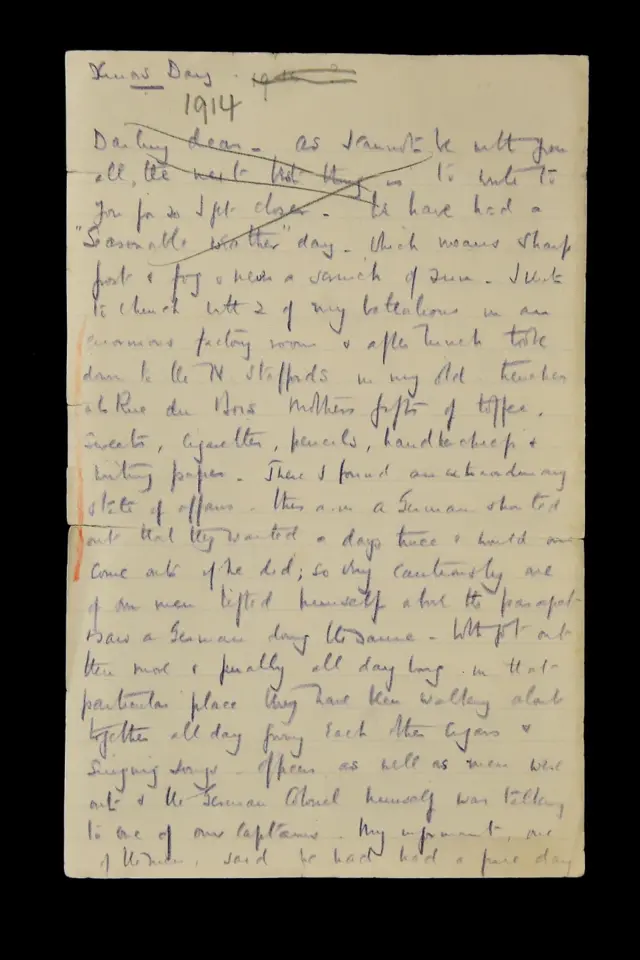 Xmas Day.
1914
Darling dear - as I cannot be with you
all, the next best thing is to write to
you for so I get closer. We have had a
"Seasonable weather" day - which means sharp
frost & fog & never a scrinch of sun. I went
to church with 2 of my battalions in an
enormous factory room & after lunch took
down to the N Staffords in my old trenches
at Rue du Bois Mothers gifts of toffee,
sweets, cigarettes, pencils, handkerchiefs &
writing paper. There I found an extraordinary
state of affairs - this a.m. a German shouted
out that they wanted a days truce & would one
come out if he did; so very cautiously one
of our men lifted himself above the parapet
& saw a German doing the same. Both got out
then more & finally all day long in that
particular place they have been walking about
together all day giving each other cigars &
singing songs. Officers as well as men were
out & the German Colonel himself was talking
to one of our Captains. My informant, one
of the men, said he had had a fine day